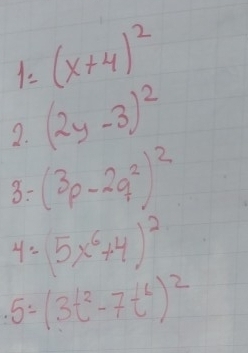 1= (x+4)²
2. (2y-3)²
3= (3p-2q²)²
4= (5x⁶+4)²
5= (3t²-7t⁶)²